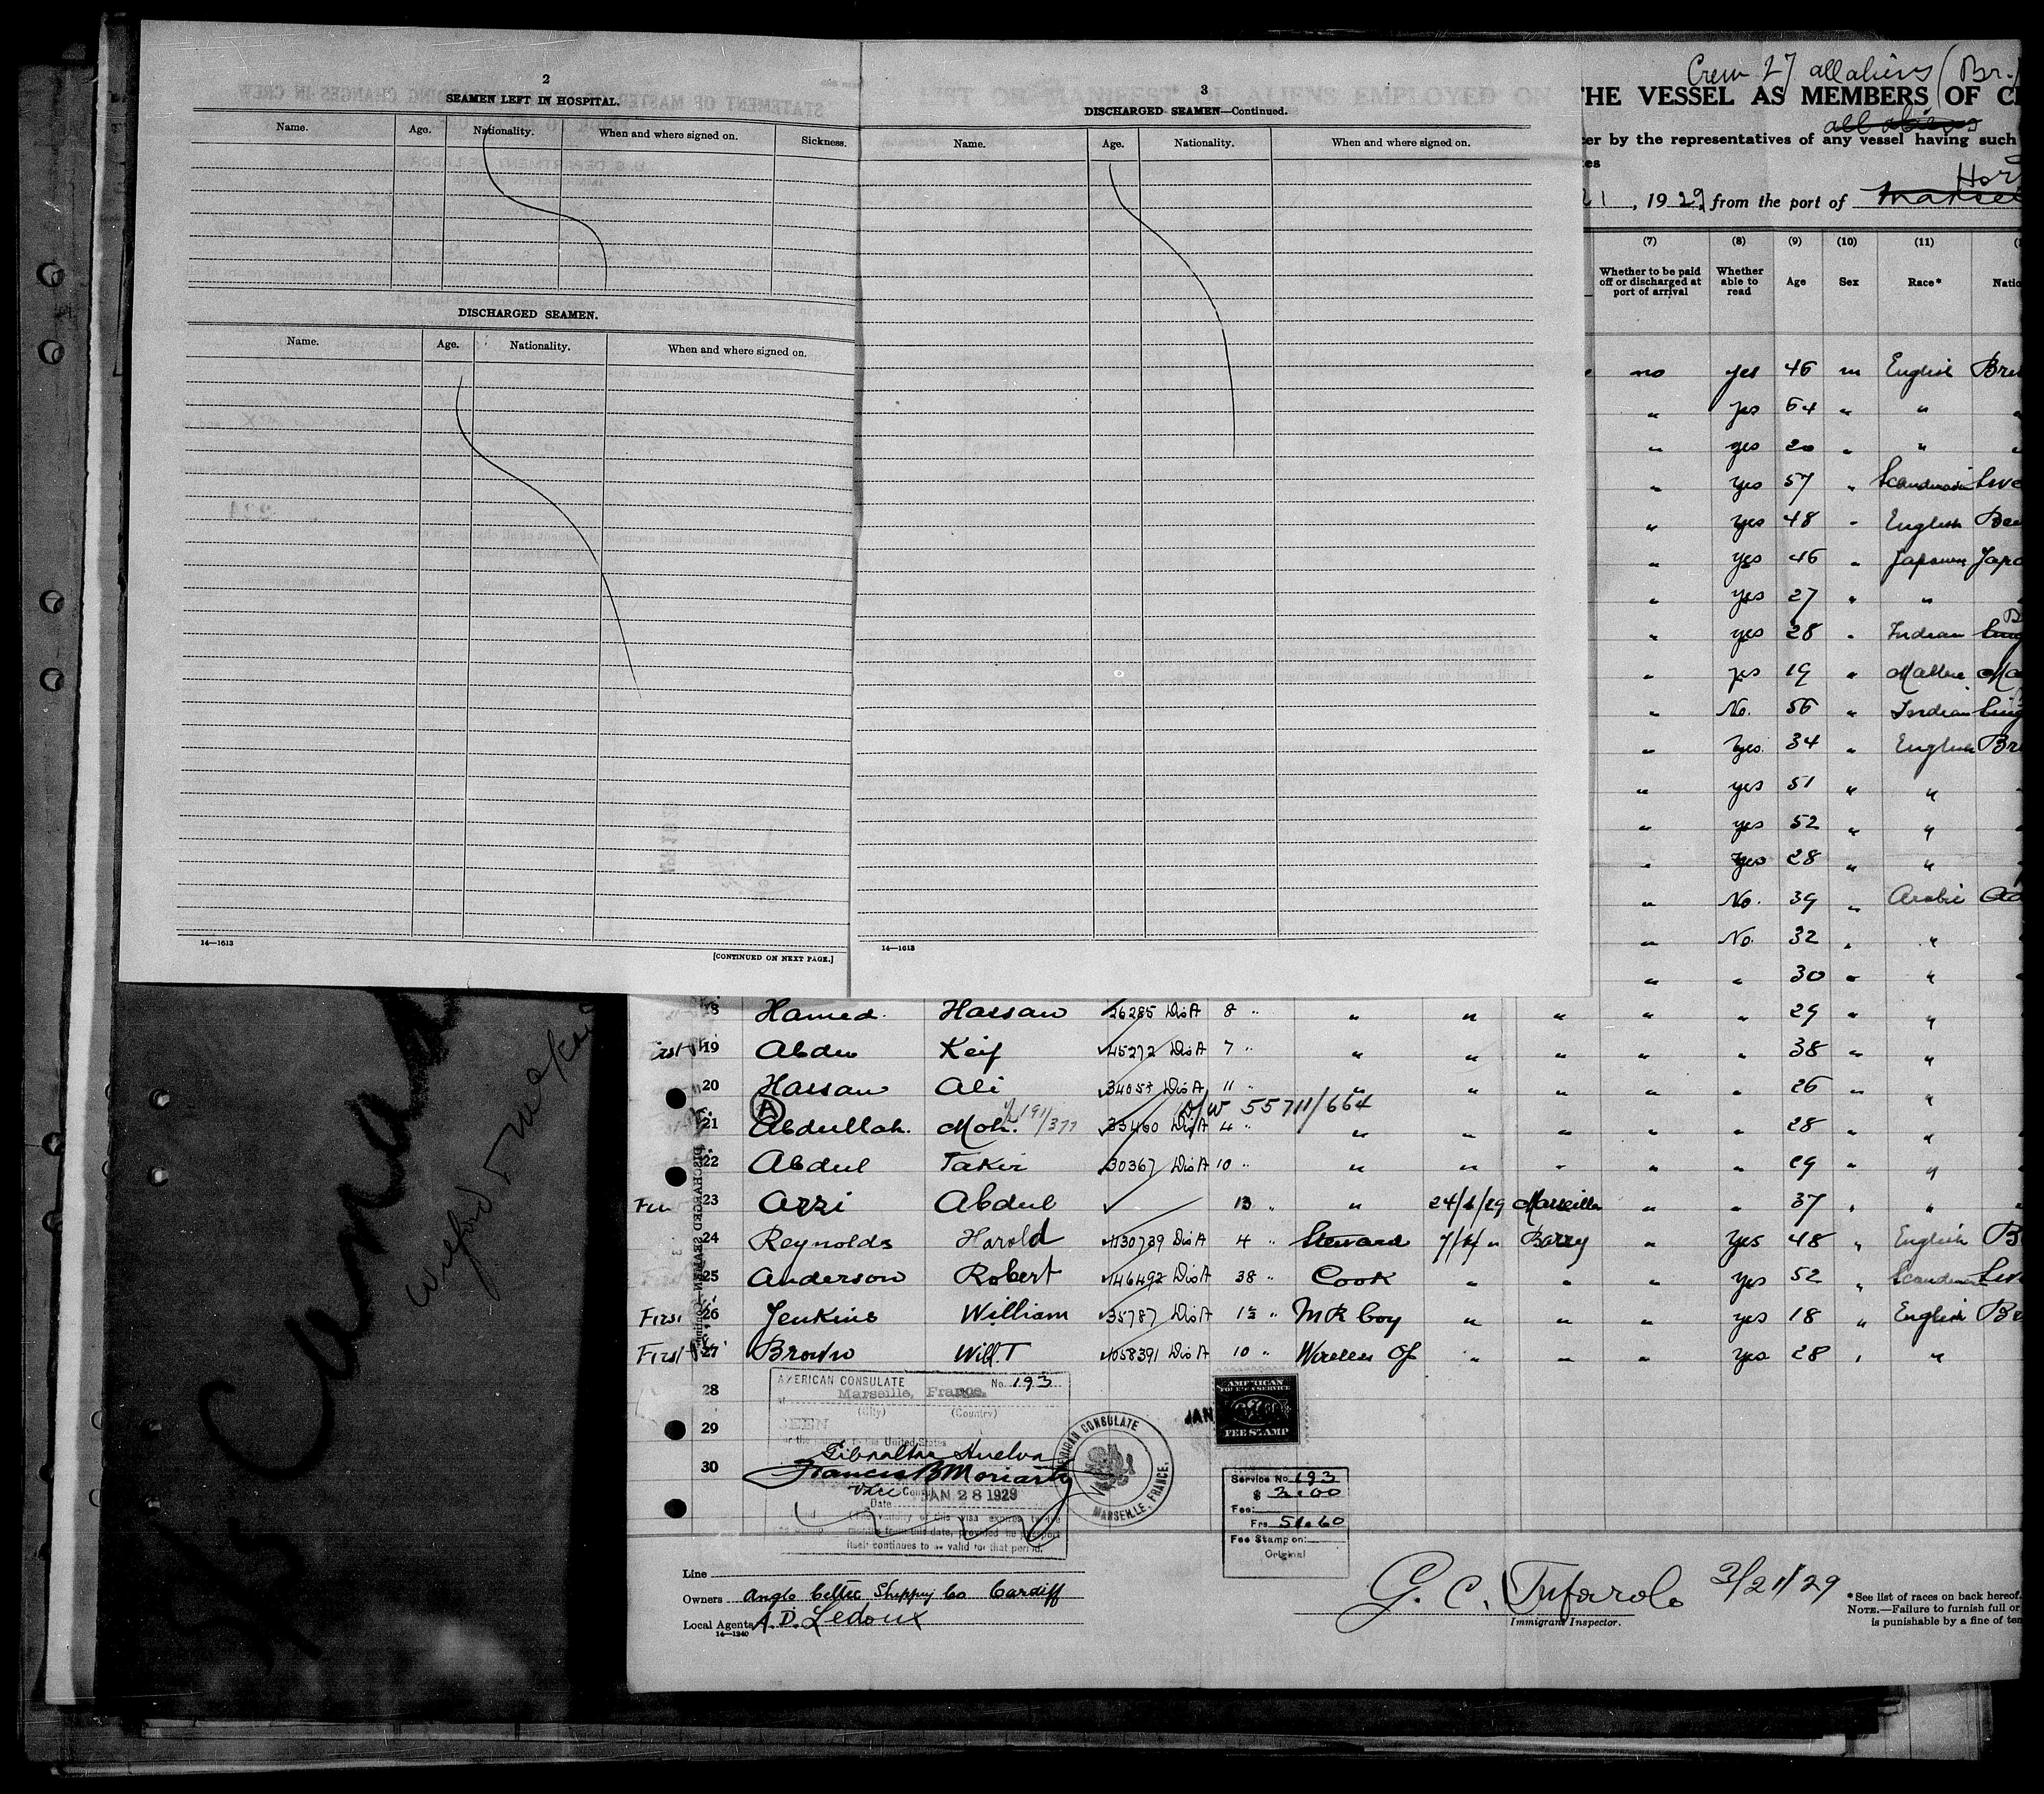 2
SEAMEN LEFT IN HOSPITAL.
Name. Age. Nationality. When and where signed on. Sickness.
DISCHARGED SEAMEN.
Name. Age. Nationality. When and where signed on.
14—1613
[CONTINUED ON NEXT PAGE.]
3
DISCHARGED SEAMEN—Continued.
Name. Age. Nationality. When and where signed on.
14—1613
Crew 27 all aliens (Br.
THE VESSEL AS MEMBERS OF C
all aliens
cer by the representatives of any vessel having such
es
Hor
21, 1929, from the port of
(7) (8) (9) (10) (11)
Whether to be paid off or discharged at port of arrival Whether able to read Age Sex Race* Natio
no yes 46 m English
" yes 64 " "
" yes 20 " "
" yes 57 " Scandinavian Swe
" yes 48 " English
" yes 46 " Japanese Japa
" yes 27 " "
" yes 28 " Indian
" yes 19 " Maltese Ma
" No. 56 " Indian
" Yes. 34 " English Br
" yes 51 " "
" yes 52 " "
" yes 28 " "
" No. 39 " Arabic
" No. 32 " "
" " 30 " "
18 Hamed. Hassan 26285 DisA 8 " " " " " " 29 " "
First 19 Abdu Keif 45272 DisA 7 " " " " " " 38 " "
20 Hassan Ali 34053 DisA 11 " " " " " " 26 " "
A
D/W 55711/664
21 Abdullah. Moh. 33460 DisA 4 " " " " " " 28 " "
22 Abdul Takir 30367 DisA 10 " " " " " " 29 " "
23 Azzi Abdul 13 " " 24/1/29 Marseilles " " 37 " "
24 Reynolds Harold 1130739 DisA 4 " Steward 7/1/ " Barry " Yes 48 " English B
25 Anderson Robert 146492 DisA 38 " Cook " " " yes 52 " Scandinavian Swe
First 26 Jenkins William 35787 DisA 1½ " M R boy " " " yes 18 " English Br
First 27 Brown Will. T 1058391 DisA 10 " Wireless Op " " " yes 28 " "
DISCHARGED SEAMEN—Contin
28
29
30
AMERICAN CONSULATE No. 193
at Marseille, France.
(City) (Country)
SEEN
for the United States
Gibraltar Huelva
Francis B Moriarty
Vice Consul
Date JAN 28 1929
(The validity of this visa expires twelve
months from this date, provided the passport
itself continues to be valid for that period.
AMERICAN CONSULATE
MARSEILLE, FRANCE.
JAN
AMERICAN
FOREIGN SERVICE
FEE STAMP
Service No. 193
$ 2.00
Fee:
Frs 51.60
Fee Stamp on:
Original
Line
Owners Anglo Celtic Shipping Co Cardiff
Local Agents A. D. Ledoux
14—1240
G. C. Tufarolo 3/21/29
Immigrant Inspector.
*See list of races on back hereof.
NOTE.—Failure to furnish full or
is punishable by a fine of ten